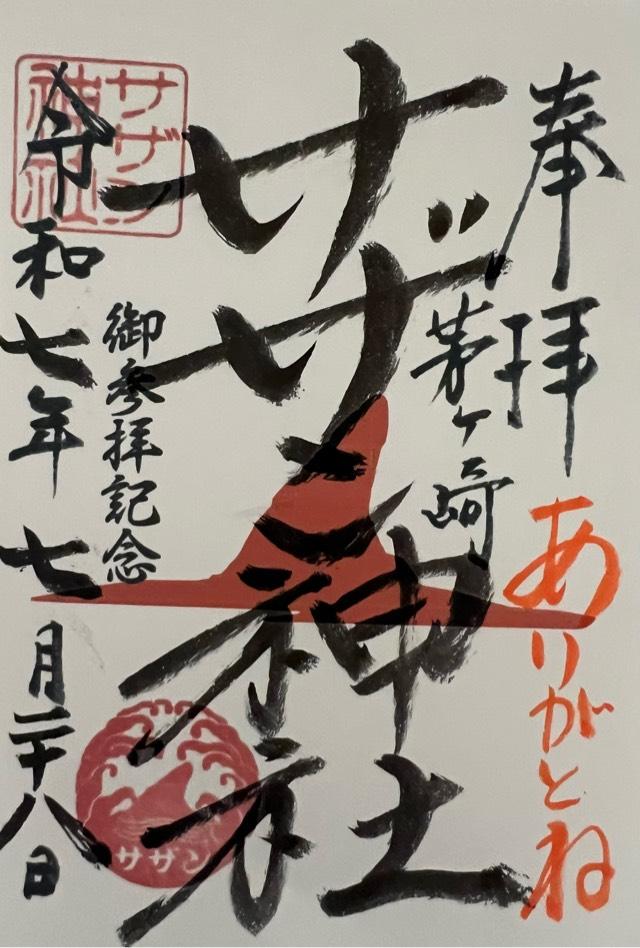 奉拝
ありがとね
茅ヶ崎
サザン神社
御参拝記念
令和七年七月二十八日
サザン
神社
サザン